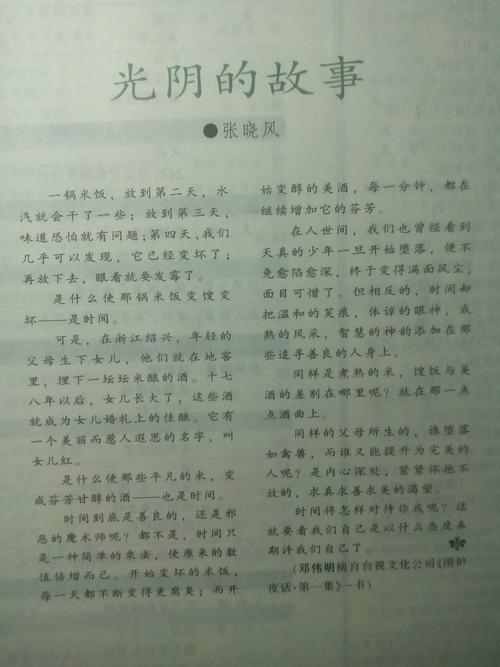 光阴的故事
●张晓风
一锅米饭，放到第二天，水
汽就会干了一些；放到第三天，
味道恐怕就有问题；第四天，我们
几乎可以发现，它已经变坏了；
再放下去，眼看就要发霉了。
是什么使那锅米饭变馊变
坏——是时间。
可是，在浙江绍兴，年轻的
父母生下女儿，他们就在地窖
里，埋下一坛坛米酿的酒。十七
八年以后，女儿长大了，这些酒
就成为女儿婚礼上的佳酿。它有
一个美丽而惹人遐思的名字，叫
女儿红。
是什么使那些平凡的米，变
成芬芳甘醇的酒——也是时间。
时间到底是善良的，还是邪
恶的魔术师呢？都不是，时间只
是一种简单的乘法，使原来的数
值倍增而已。开始变坏的米饭，
每一天都不断变得更腐臭；而开
始变醇的美酒，每一分钟，都在
继续增加它的芬芳。
在人世间，我们也曾经看到
天真的少年一旦开始堕落，便不
免愈陷愈深，终于变得满面风尘，
面目可憎了。但相反的，时间却
把温和的笑痕，体谅的眼神，成
熟的风采，智慧的神韵添加在那
些追寻善良的人身上。
同样是煮熟的米，馊饭与美
酒的差别在哪里呢？就在那一点
点酒曲上。
同样的父母所生的，谁堕落
如禽兽，而谁又能提升为完美的
人呢？是内心深处，紧紧怀抱不
放的，求真求善求美的渴望。
时间将怎样对待你我呢？这
就要看我们自己是以什么态度来
期许我们自己了。
（邓伟明摘自台视文化公司《围炉
夜话·第一集》一书）